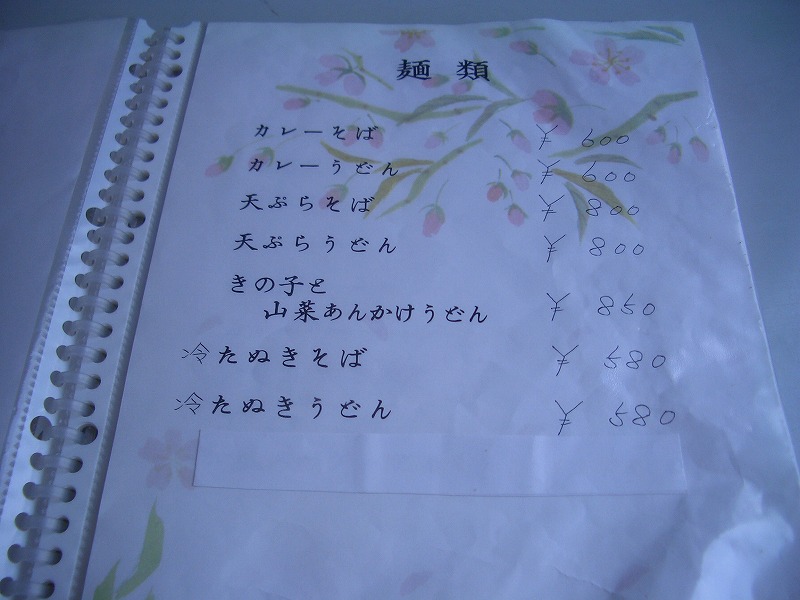 麺類
カレーそば ¥ 600
カレーうどん ¥ 600
天ぷらそば ¥ 800
天ぷらうどん ¥ 800
きの子と
山菜あんかけうどん ¥ 850
冷たぬきそば ¥ 580
冷たぬきうどん ¥ 580